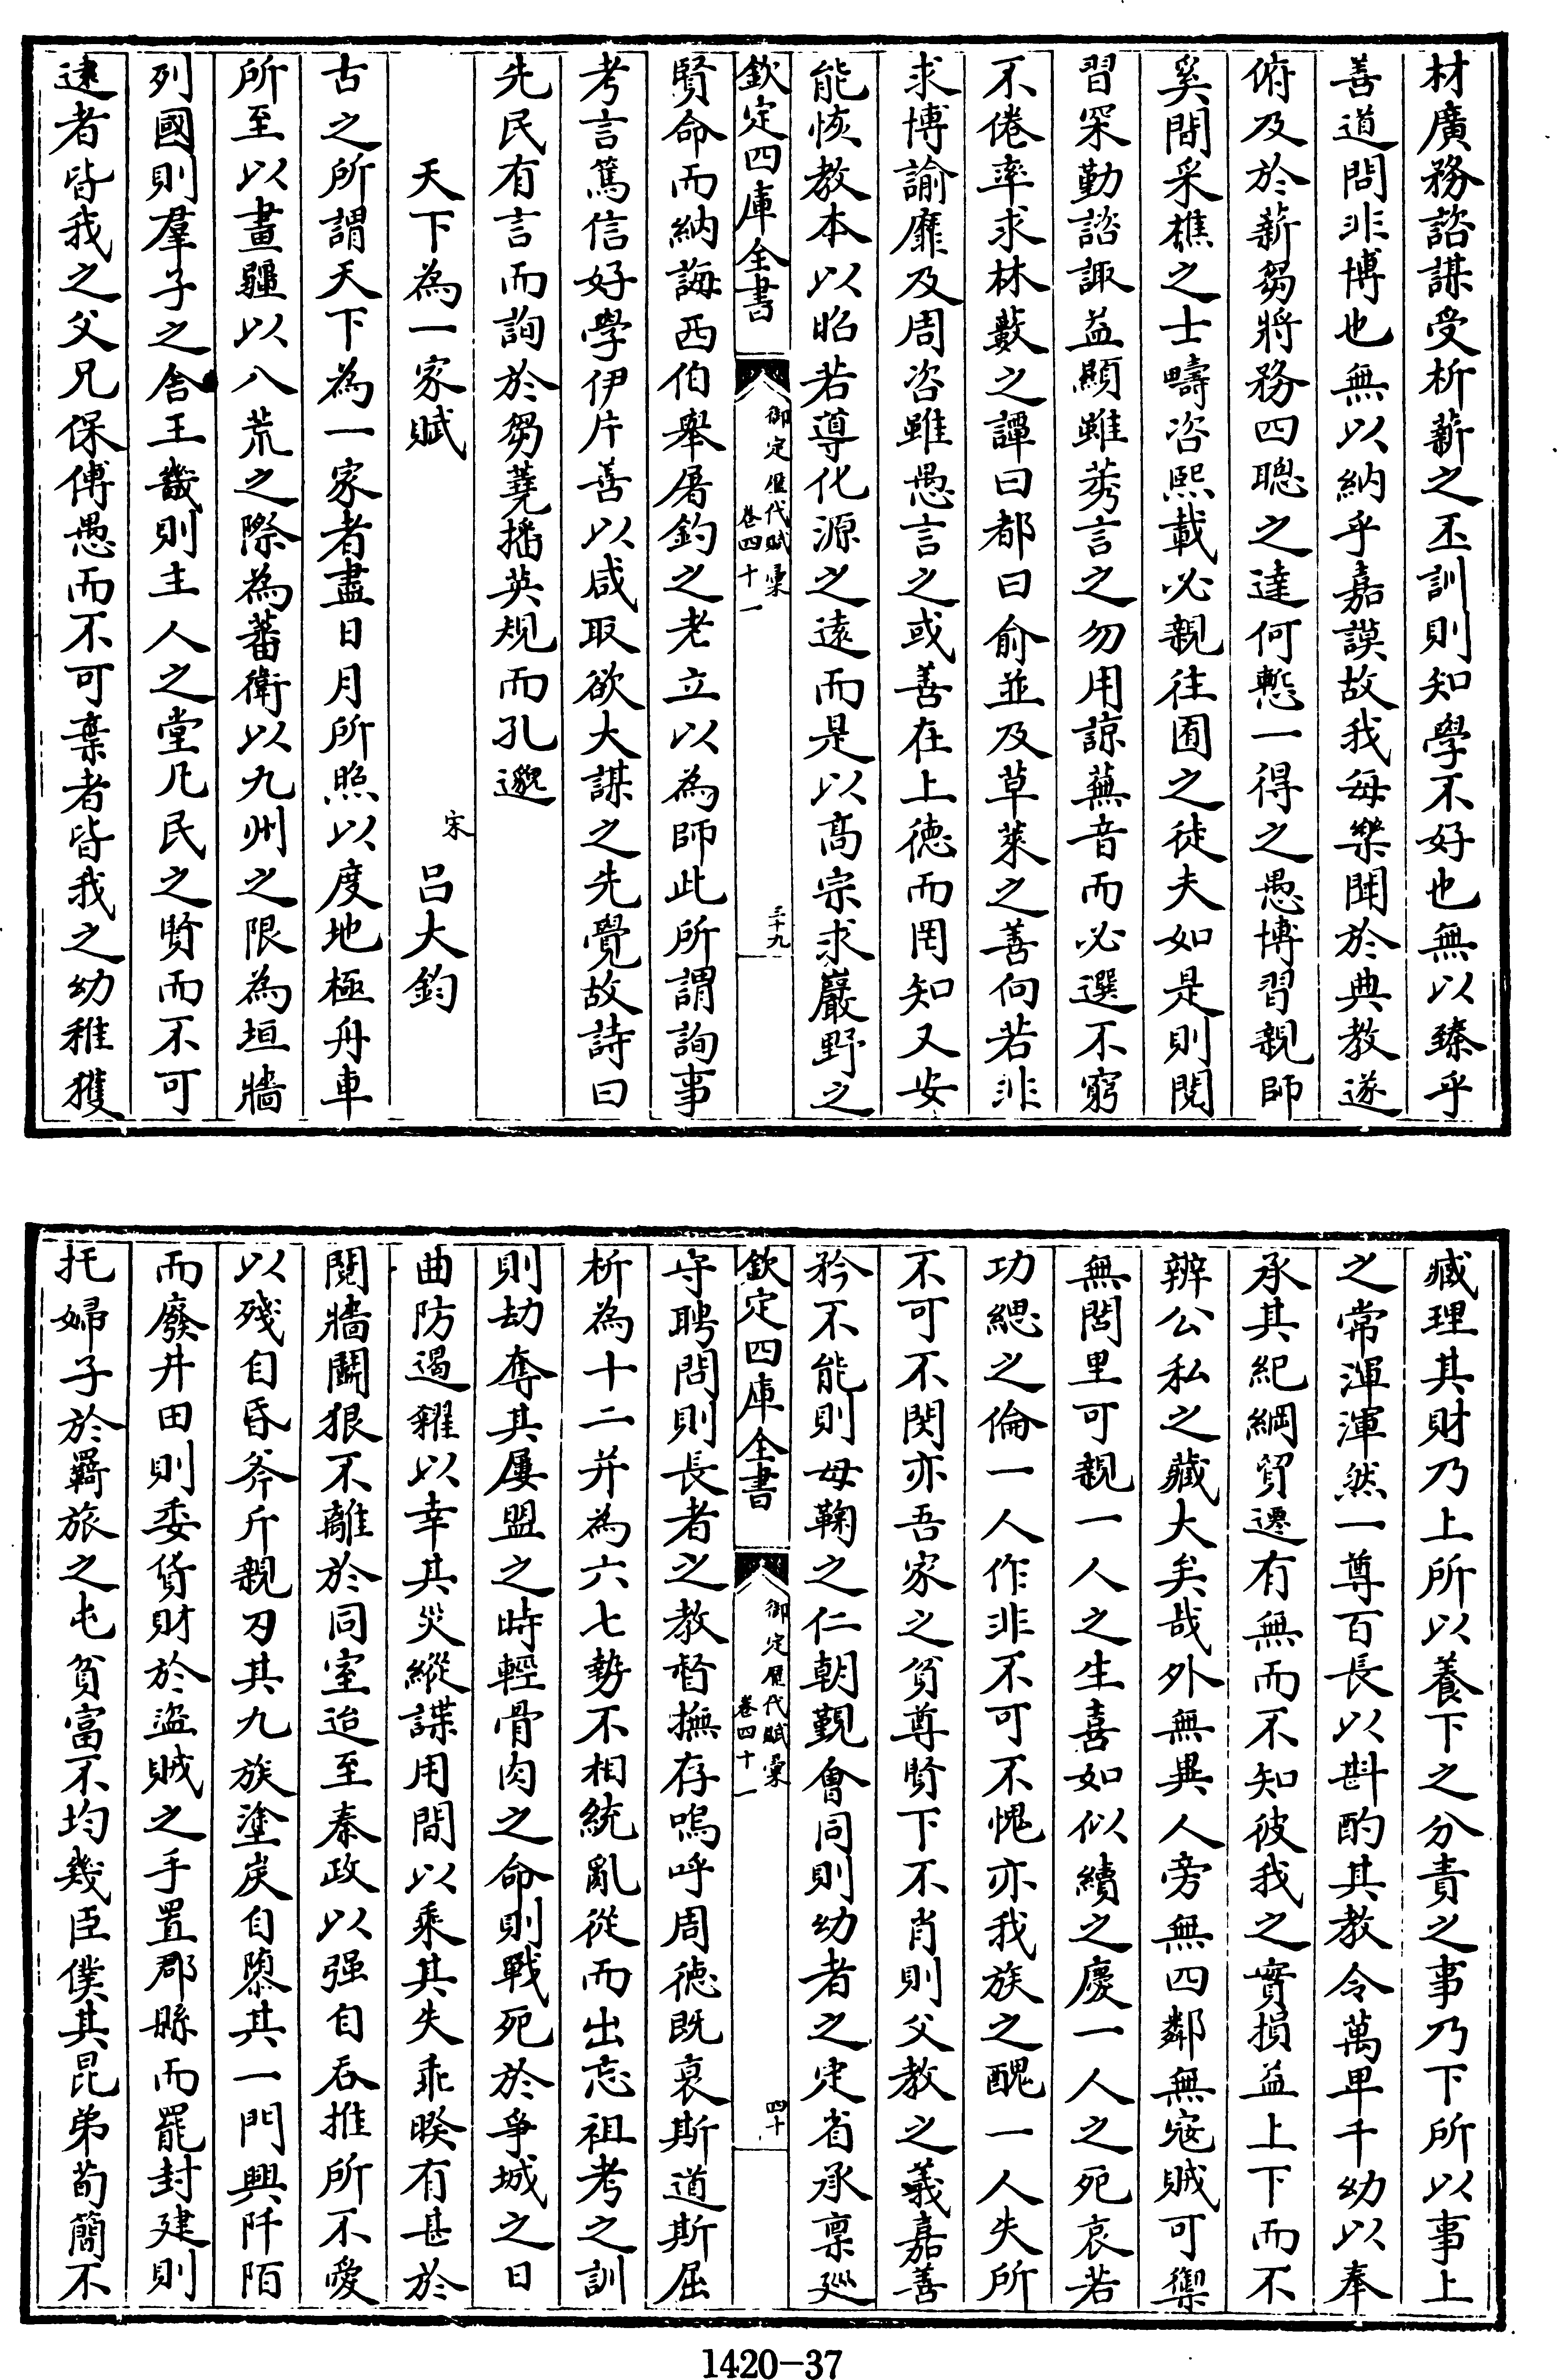 材廣務諮謀受析薪之丕訓則知學不好也無以臻乎
善道問非博也無以納乎嘉謨故我毎樂聞於典教遂
俯及於薪芻將務四聰之達何慙一得之愚博習親師
奚間采樵之士疇咨熙載必親往囿之徒夫如是則閱
習罙勤諮諏益顯雖莠言之勿用諒蕪音而必選不窮
不倦率求林藪之譚曰都曰俞並及草萊之善何若非
求博諭靡及周咨雖愚言之或善在上徳而罔知又安
能恢教本以昭若導化源之遠而是以髙宗求巖野之
欽定四庫全書
御定歴代賦彙
卷四十一
三十九
賢命而納誨西伯舉屠釣之老立以為師此所謂詢事
考言篤信好學伊片善以咸取欲大謀之先覺故詩曰
先民有言而詢於芻蕘播英規而孔邈
天下為一家賦
宋
呂大鈞
古之所謂天下為一家者盡日月所照以度地極舟車
所至以畫疆以八荒之際為蕃衛以九州之限為垣牆
列國則羣子之舎王畿則主人之堂凡民之賢而不可
逺者皆我之父兄保傅愚而不可棄者皆我之幼稚獲
臧理其財乃上所以養下之分責之事乃下所以事上
之常渾渾然一尊百長以斟酌其教令萬卑千幼以奉
承其紀綱貿遷有無而不知彼我之實損益上下而不
辨公私之藏大矣哉外無異人旁無四鄰無宼賊可禦
無閭里可親一人之生喜如似續之慶一人之死哀若
功緦之倫一人作非不可不愧亦我族之醜一人失所
不可不閔亦吾家之貧尊賢下不肖則父教之義嘉善
矜不能則母鞠之仁朝覲會同則幼者之定省承禀廵
欽定四庫全書
御定歴代賦彙
卷四十一
四十
守聘問則長者之教督撫存嗚呼周徳既衰斯道斯屈
析為十二并為六七勢不相統亂從而出忘祖考之訓
則劫奪其屢盟之時輕骨肉之命則戰死於爭城之日
曲防遏糴以幸其災縱諜用間以乘其失乖睽有甚於
䦧牆鬭狠不離於同室迨至秦政以强自呑推所不愛
以殘自昏斧斤親刃其九族塗炭自隳其一門興阡陌
而廢井田則委貨財於盜賊之手置郡縣而罷封建則
托婦子於羇旅之屯貧富不均幾臣僕其昆弟苟簡不
1420-37